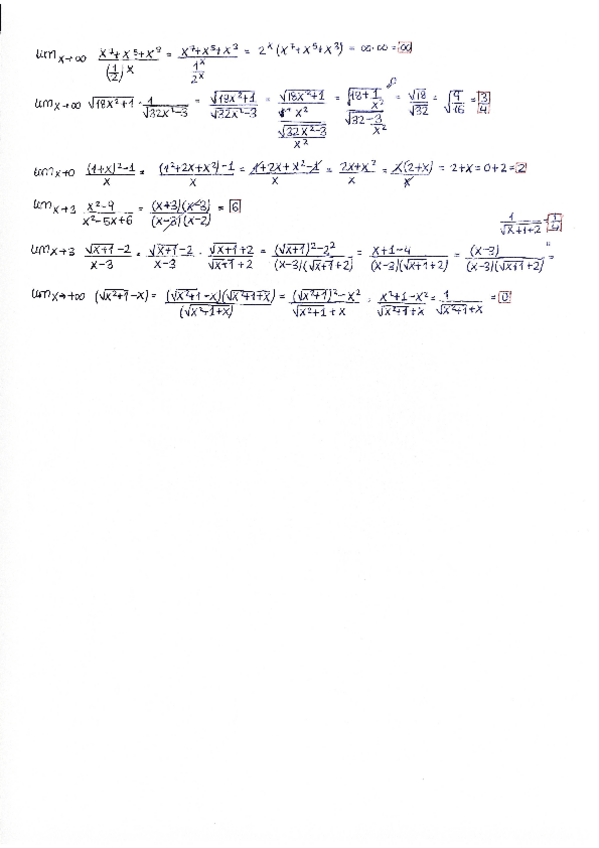 lim x→∞ (x⁷+x⁵+x³)/(1/2)^x = (x⁷+x⁵+x³)/(1^x/2^x) = 2^x (x⁷+x⁵+x³) = ∞·∞ = ∞
lim x→∞ √(18x²+1) · 1/√(32x²-3) = √(18x²+1)/√(32x²-3) = (√(18x²+1)/x²)/(√(32x²-3)/x²) = √(18+1/x²)/√(32-3/x²) = √18/√32 = √(9/16) = 3/4
lim x→0 ((1+x)²-1)/x = ((1²+2x+x²)-1)/x = (1+2x+x²-1)/x = (2x+x²)/x = x(2+x)/x = 2+x = 0+2 = 2
lim x→3 (x²-9)/(x²-5x+6) = (x+3)(x-3)/(x-3)(x-2) = 6
1/(√(x+1)+2) = 1/4
lim x→3 (√(x+1)-2)/(x-3) = (√(x+1)-2)/(x-3) · (√(x+1)+2)/(√(x+1)+2) = ((√(x+1))²-2²)/((x-3)(√(x+1)+2)) = (x+1-4)/((x-3)(√(x+1)+2)) = (x-3)/((x-3)(√(x+1)+2)) =
lim x→+∞ (√(x²+1)-x) = (√(x²+1)-x)(√(x²+1)+x)/(√(x²+1)+x) = ((√(x²+1))²-x²)/(√(x²+1)+x) = (x²+1-x²)/(√(x²+1)+x) = 1/(√(x²+1)+x) = 0